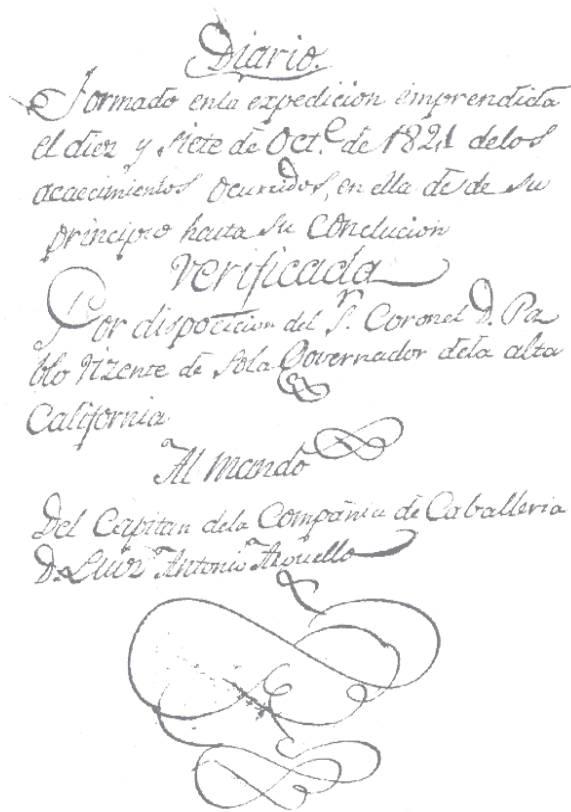 Diario.
Formado enla expedicion emprendida
el diez y siete de Oct.e de 1821 delos
acaecimientos ocurridos, en ella de de su
principio hasta su conclucion
Verificada
Por dispocicion del S.r Coronel D. Pa
blo Vizente de Sola Governador dela alta
California
Al mando
Del Capitan dela Compañia de Caballeria
D. Luiz Antonio Arguello